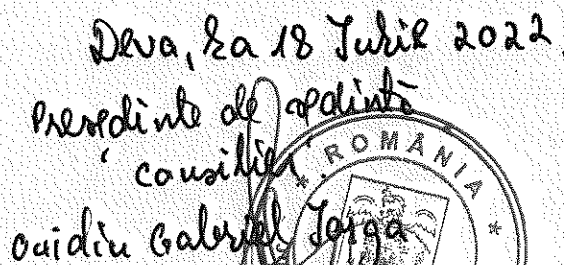 Deva, la 18 Iulie 2022
Președinte de ședință
consilier
Ovidiu Gabriel Iorga
ROMÂNIA